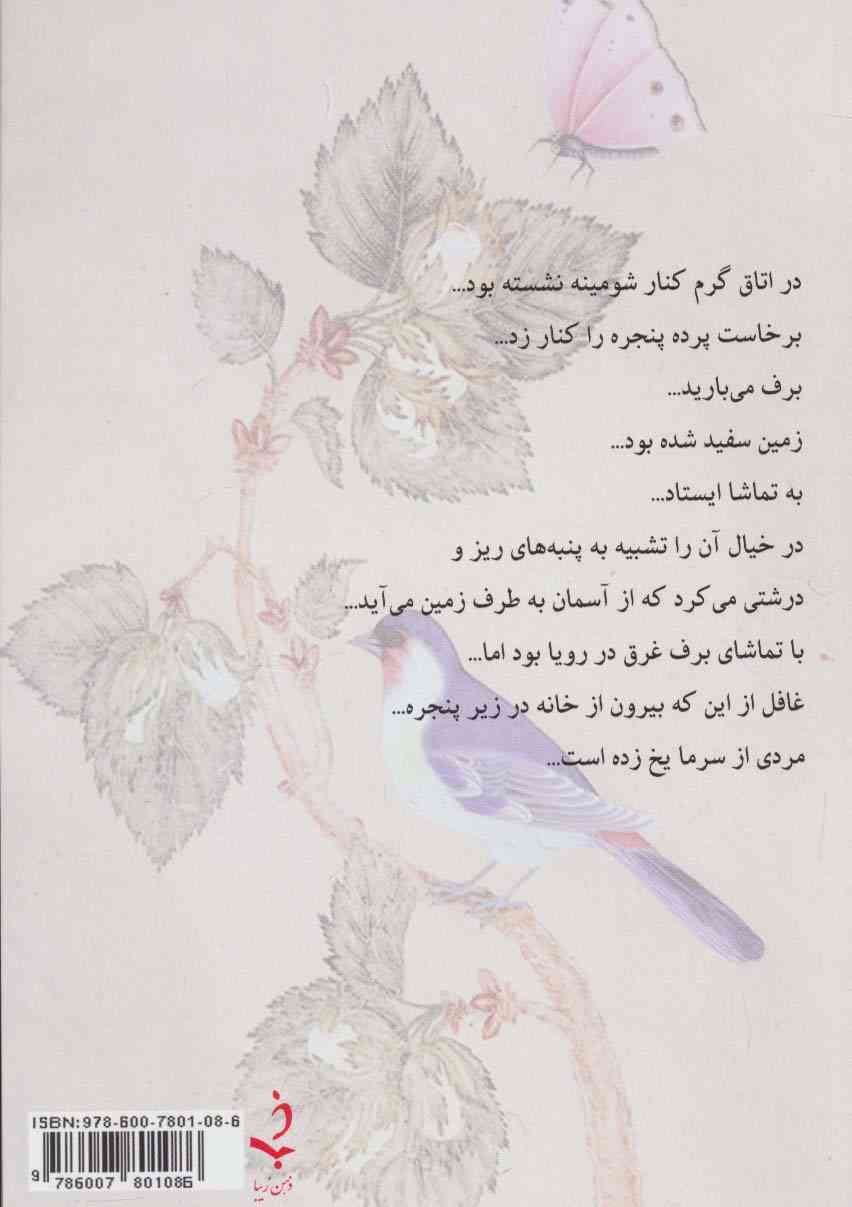 در اتاق گرم کنار شومینه نشسته بود...
برخاست پرده پنجره را کنار زد...
برف می‌بارید...
زمین سفید شده بود...
به تماشا ایستاد...
در خیال آن را تشبیه به پنبه‌های ریز و
درشتی می‌کرد که از آسمان به طرف زمین می‌آید...
با تماشای برف غرق در رویا بود اما...
غافل از این که بیرون از خانه در زیر پنجره...
مردی از سرما یخ زده است...
ISBN: 978-600-7801-08-6
9 786007 801086
ذهن زیبا